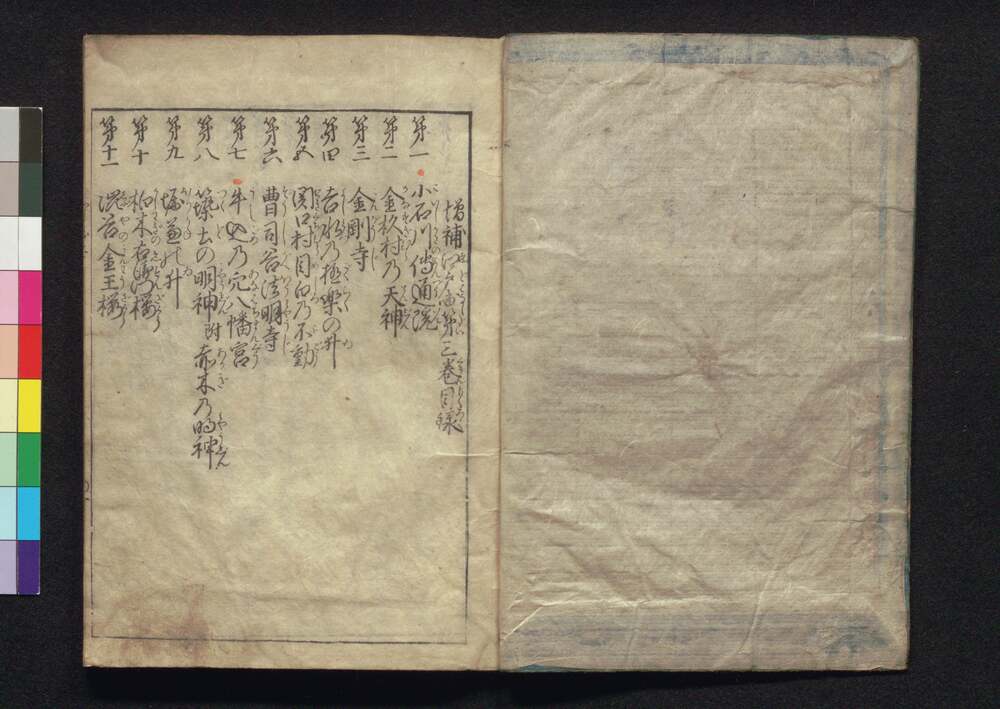 増補江戸咄第三巻目録
第一 小石川傳通院
第二 金杉村乃天神
第三 金剛寺
第四 吉水乃極楽の井
第五 関口村目白乃不動
第六 曹司谷法明寺
第七 牛込乃穴八幡宮
第八 築土の明神附赤木乃明神
第九 堀兼の井
第十 柏木右衛門櫻
第十一 渋谷金王櫻